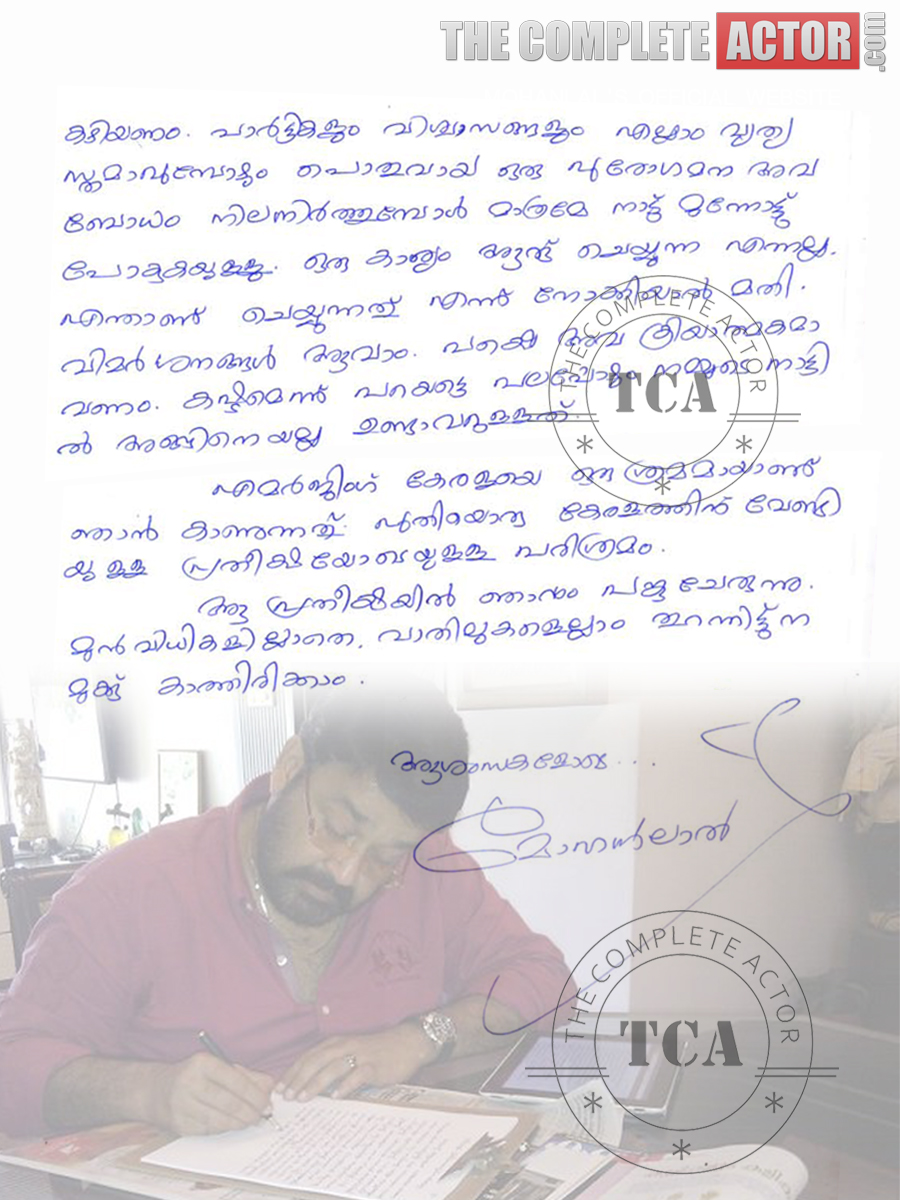 THE COMPLETE ACTOR .com
കഴിയണം. പാർട്ടികളും വിശ്വാസങ്ങളും എല്ലാം വ്യത്യ
സ്തമാവുമ്പോഴും പൊതുവായ ഒരു പുരോഗമന അവ
ബോധം നിലനിർത്തുമ്പോൾ മാത്രമേ നാട്ട് മുന്നോട്ട്
പോകുകയുള്ളൂ. ഒരു കാര്യം ആര് ചെയ്യുന്നു എന്നല്ല.
എന്താണ് ചെയ്യുന്നത് എന്ന് നോക്കിയാൽ മതി.
വിമർശനങ്ങൾ ആവാം. പക്ഷെ അവ ക്രിയാത്മകമാ
വണം. കഷ്ടമെന്ന് പറയട്ടെ പലപ്പോഴും നമ്മുടെ നാട്ടി
ൽ അങ്ങിനെയല്ല ഉണ്ടാവാറുള്ളത്.
എമർജിംഗ് കേരളയെ ഒരു ശ്രമമായാണ്
ഞാൻ കാണുന്നത്. പുതിയൊരു കേരളത്തിന് വേണ്ടി
യുള്ള പ്രതീക്ഷയോടെയുള്ള പരിശ്രമം.
ആ പ്രതീക്ഷയിൽ ഞാനും പങ്കു ചേരുന്നു.
മുൻവിധികളില്ലാതെ, വാതിലുകളെല്ലാം തുറന്നിട്ട് ന
മുക്ക് കാത്തിരിക്കാം.
ആശംസകളോടെ...
മോഹൻലാൽ
THE COMPLETE ACTOR
TCA
THE COMPLETE ACTOR
TCA